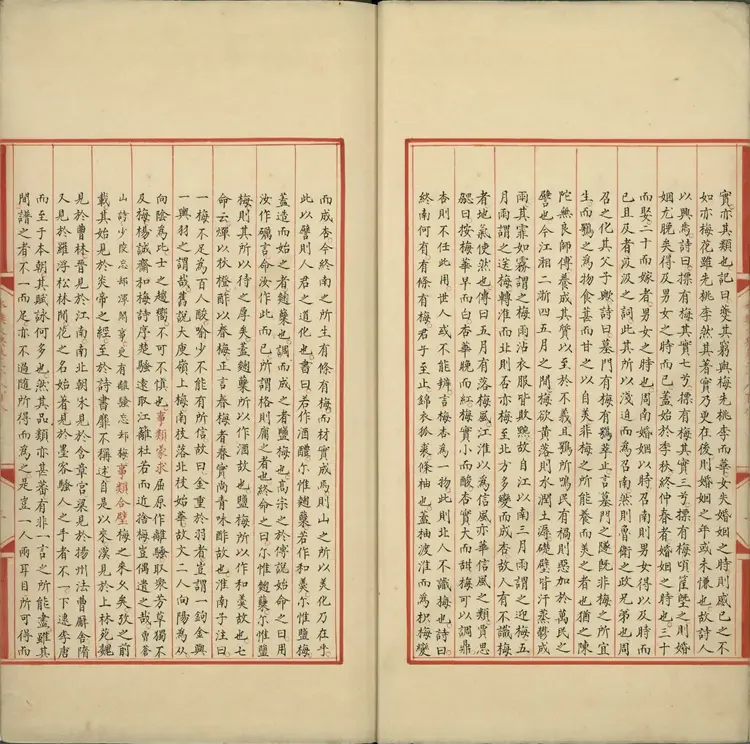 實亦其類也記曰夔其窮與梅先桃李而華女失婚姻之時則感已之不
如亦梅花雖先桃李然其著實乃更在後則婚姻之年或未慊也故詩人
以興焉詩曰摽有梅其實七兮摽有梅其實三兮摽有梅頃筐塈之則婚
姻尤晚矣得及男女之時而已蓋始於季秋終仲春者婚姻之時也三十
而娶二十而嫁者男女之時也周南婚姻以時召南則男女得以及時而
已且及者汲汲之詞此其所以淺迫而為召南然則魯衛之政兄弟也周
召之化其父子歟詩曰墓門有梅有鴞萃止言墓門之隧既非梅之所宜
生而鴞之為物食葚而甘之以自美非梅之所能養而美之者也猶之陳
陀無良師傅養成其質以至於不義且鴞所鳴民有禍則惡加於萬民之
譬也今江湘二浙四五月之間梅欲黃落則水潤土溽礎壁皆汗蒸鬱成
雨其霏如霧謂之梅雨沾衣服皆敗黦故自江以南三月雨謂之迎梅五
月雨謂之送梅轉淮而北則否亦梅至北方多變而成杏故人有不識梅
者地氣使然也傳曰五月有落梅風江淮以為信風亦華信風之類賈思
勰曰按梅華早而白杏華晚而紅梅實小而酸杏實大而甜梅可以調鼎
杏則不任此用世人或不能辨言梅杏為一物此則北人不識梅也詩曰
終南何有有條有梅君子至止錦衣狐裘條柚也蓋柚渡淮而為枳梅變
而成杏今終南之所生有條有梅而材實成焉則山之所以美化乃在乎
此以譬則人君之道化也書曰若作酒醴尔惟麴糵若作和羹尔惟鹽梅
蓋造而始之者麴糵也調而成之者鹽梅也高宗之於傅說始命之曰用
汝作礪言命汝作此而已所謂格則庸之者也終命之曰尔惟麴糵尔惟鹽
梅則其所以待之厚矣蓋麴糵所以作酒故也鹽梅所以作和羹故也七
命云燀以秋橙酢以春梅正言春梅者春實尚青味酢故也淮南子注曰
一梅不足為百人酸喻少不能有所信故曰金重於羽者豈謂一鉤金與
一輿羽之謂哉舊說大庾嶺上梅南枝落北枝始華故文二人向陽為从
向陰為比士之趨嚮不可不慎也事類蒙求屈原作離騷取衆芳草獨不
及梅楊誠齋和梅詩序楚騷遠取江離杜若而近捨梅豈偶遺之哉曹荅
山詩少陵忘却渾閑事更有離騷忘却梅事類合璧梅之來久矣攷之前
載其始見於炎帝之經至於詩書靡不稱述自是以來漢見於上林苑魏
見於曹林晉見於江南南北朝宋見於含章宮梁見於揚州法曹廨舍隋
又見於羅浮松林閒花之名始著見於墨客騷人之手者不一下逮李唐
而至于本朝其賦詠何多也然其品類亦甚蕃有非一言之所能盡雖其
間譜之者不一而足亦不過隨所得而為之是豈一人兩耳目所可得而